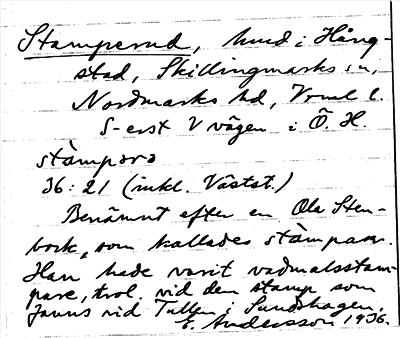 Stamperud, hmd i Häng-
stad, Skillingmarks sn,
Nordmarks hd, Vrml l.
S-erst V vägen i Ö. H.
stàmpərə
36:21 (inkl. Västst.)
Benämnt efter en Ola Sten-
bork, som kallades stàmparn.
Han hade varit vadmalsstam-
pare, trol. vid den stamp som
fanns vid Tullen i Sundshagen.
E. Andersson 1936.